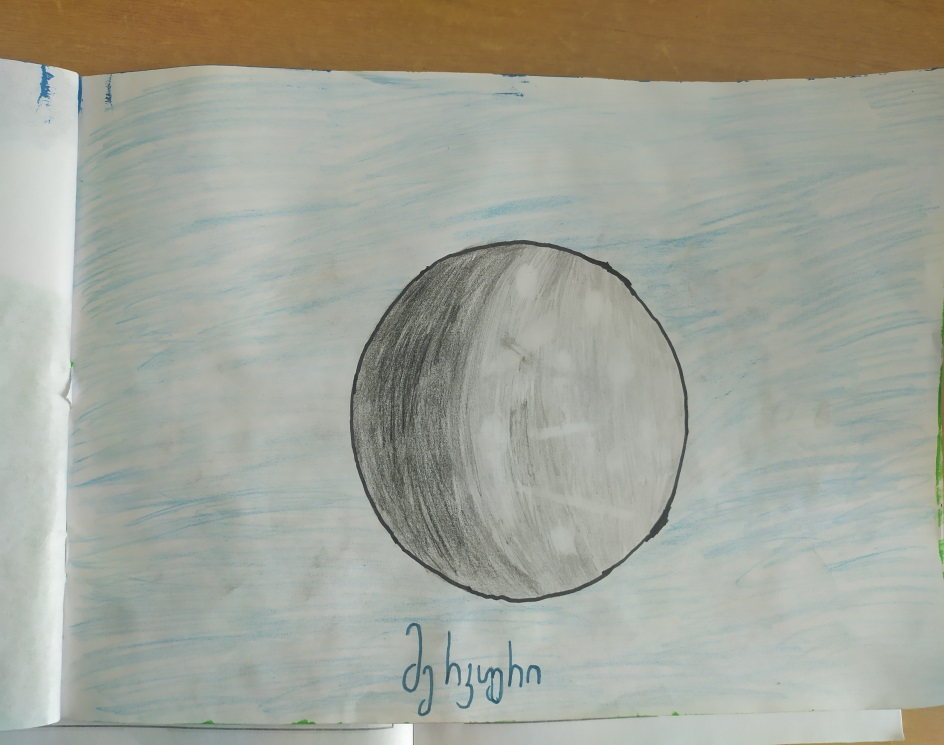 მერკური